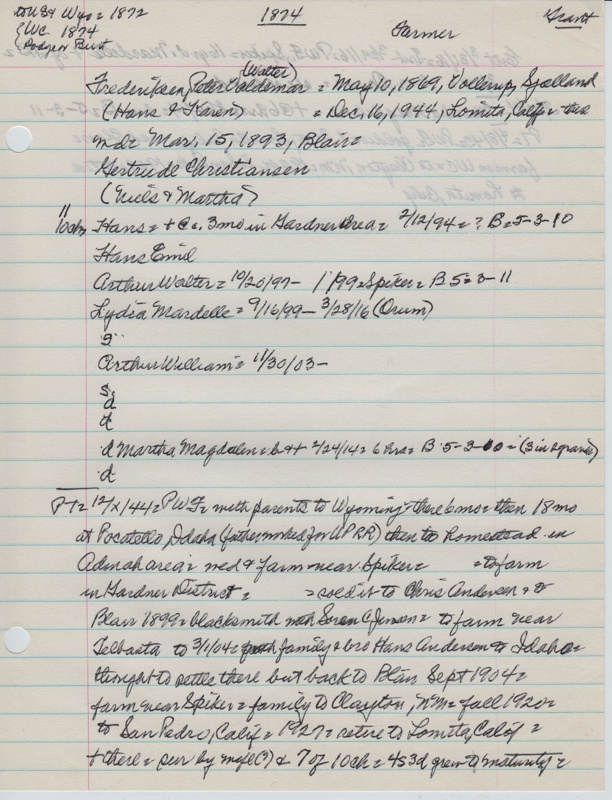 to US & Wyo = 1872 1874 Grant
WC 1874 Farmer
Rodger Bust
(Walter)
Frederiksen, Peter Valdemar = May 10, 1869, Vollerup, Sjalland
(Hans & Karen) = Dec, 16, 1944, Lomita, Calif =
md = Mar, 15, 1893, Blair =
Gertrude Christiansen
(Niels & Martha)
11
10ch = Hans = + ca. 3 mo in Gardner Area = 2/12/94 = ? B = 5-3-10
Hans Emil
Arthur Walter = 10/20/97 - 1/ /99 = Spiker = B 5 = 3-11
Lydia Mardelle = 9/16/99 - 3/28/16 (Orum)
s
Arthur William = 11/30/03 -
s
d
d
d Martha Magdalen = b & + 2/24/14 = 6 hrs = B 5-3-10 = (3 in 2 graves)
d
PT = 12/x/44 = PWF = with parents to Wyoming = there 6 mo = then 18 mo
at Pocatello, Idaho (father worked for UPRR) then to homestead in
Admah area = md & farm near Spiker = = to farm
in Gardner District = = sold it to Chris Andersen = to
Blair 1899 = blacksmith with Soren C Jensen = to farm near
Telbasta to 3/1/04 = family & bro Hans Andersen to Idaho =
thought to settle there but back to Blair Sept 1904 =
farm near Spiker = family to Clayton, NM = fall 1920 =
to San Pedro, Calif = 1927 = retire to Lomita, Calif =
+ there = sur by wife (?) & 7 of 10 ch = 4s 3d grew to maturity =